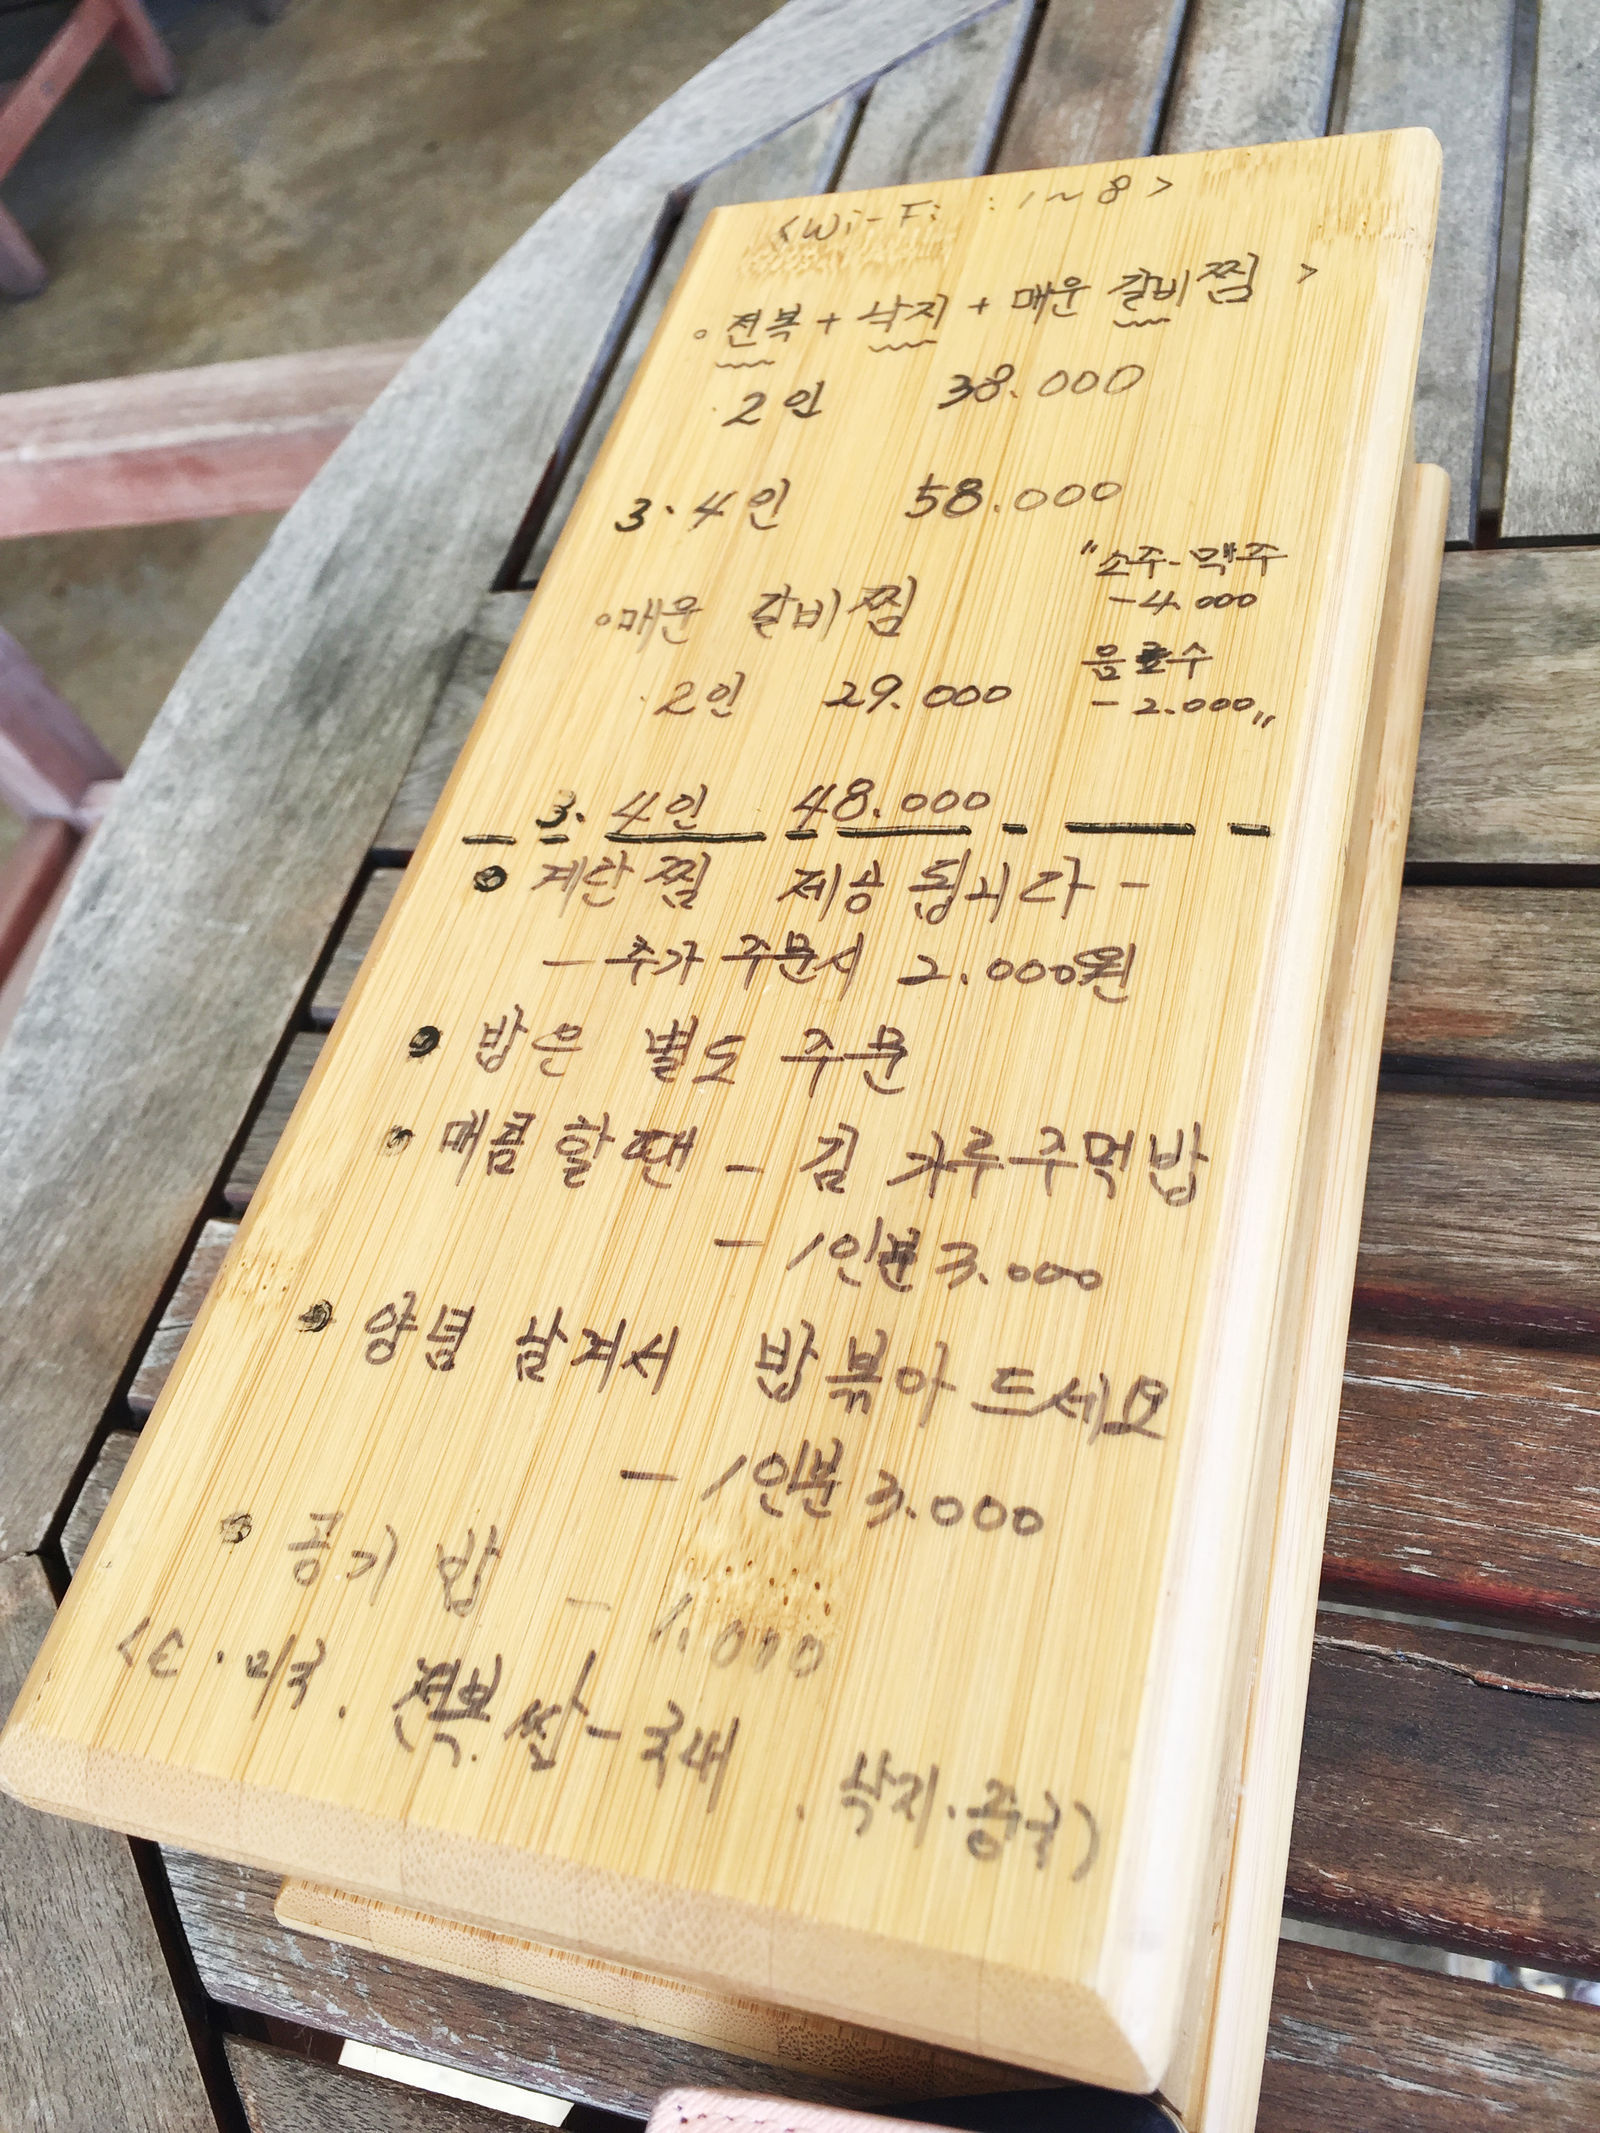 <Wi-Fi : 1~8>
○ 전복 + 낙지 + 매운 갈비찜 >
2인 38.000
3·4인 58.000
"소주-맥주
-4.000
음료수
-2.000"
○매운 갈비찜
·2인 29.000
3·4인 48.000
● 계란찜 제공됩니다-
- 추가 주문시 2.000원
● 밥은 별도 주문
● 매콤할땐 - 김가루주먹밥
- 1인분 3.000
● 양념 남겨서 밥볶아 드세요
- 1인분 3.000
● 공기밥 - 1.000
미국. 전복.쌀-국내 . 낙지.중국)